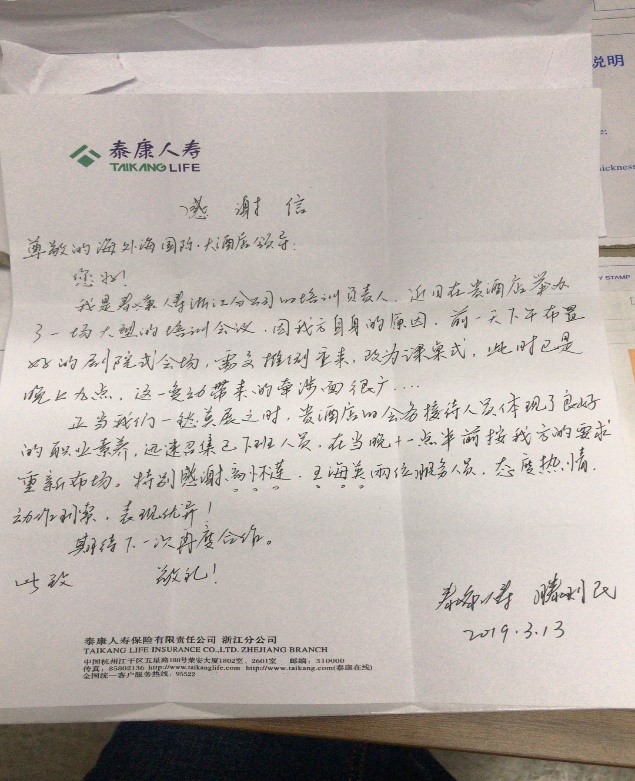 说明
泰康人寿
TAIKANG LIFE
感谢信
尊敬的海外海国际大酒店领导:
您好!
我是泰康人寿浙江分公司的培训负责人,近日在贵酒店举办
了一场大型的培训会议,因我方自身的原因,前一天下午布置
好的剧院式会场,需要推倒重来,改为课桌式,此时已是
晚上九点,这一变动带来的牵涉面很广....
正当我们一筹莫展之时,贵酒店的会务接待人员体现了良好
的职业素养,迅速召集已下班人员,在当晚十一点半前按我方的要求
重新布场。特别感谢 怀莲、王海英两位服务人员,态度热情,
动作利索,表现优异!
期待下一次再度合作。
此致 敬礼!
泰康人寿 滕利民
2019.3.13
泰康人寿保险有限责任公司 浙江分公司
TAIKANG LIFE INSURANCE CO.LTD. ZHEJIANG BRANCH
中国杭州江干区五星路188号荣安大厦1802室、2601室 邮编:310000
传真:85802136 http://www.taikanglife.com http://www.taikang.com(泰康在线)
全国统一客户服务热线:95522
STAMP